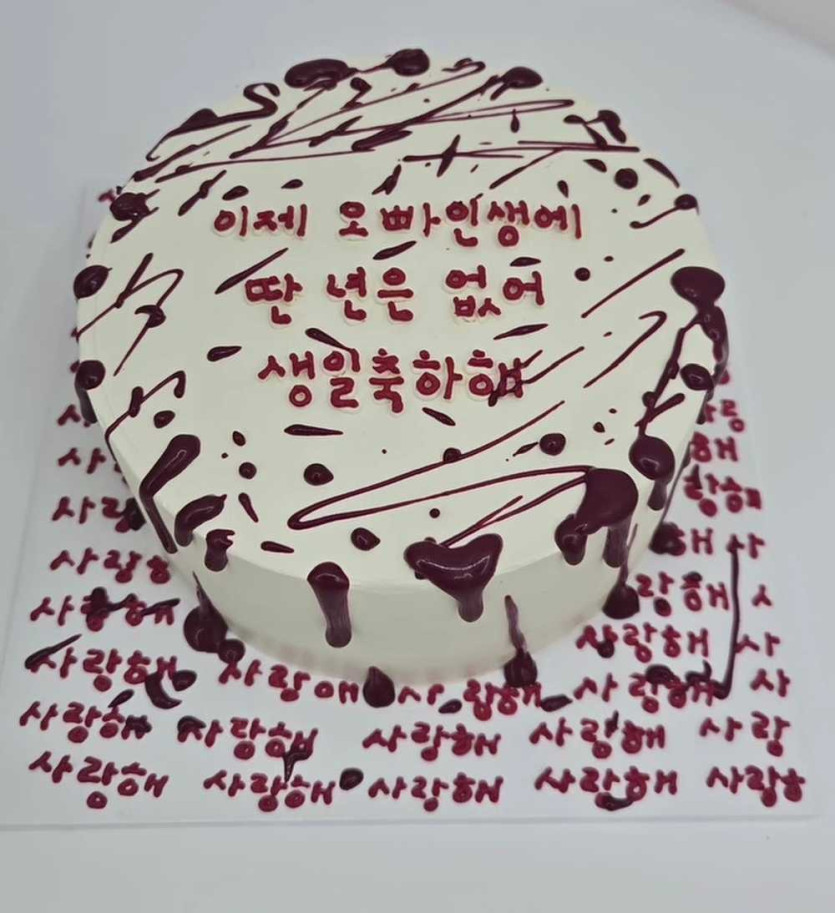 이제 오빠인생에
딴 년은 없어
생일축하해
사랑
해
랑해
사랑
해 사
사랑해
랑해 사
사랑해
사랑해 사
사랑해 사랑해 사랑해 사랑해 사
사랑해 사랑해 사랑해 사랑해 사랑
사랑해 사랑해 사랑해 사랑해 사랑해